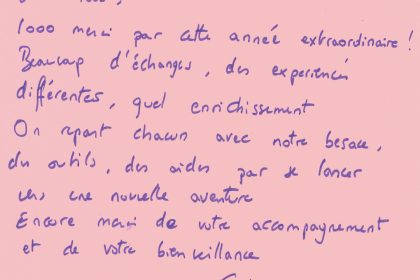 1000 merci par cette année extraordinaire !
Beaucoup d'échanges, des experiences
différentes, quel enrichissement
On repart chacun avec notre besace,
des outils, des aides par se lancer
vers une nouvelle aventure
Encore merci de votre accompagnement
et de votre bienveillance